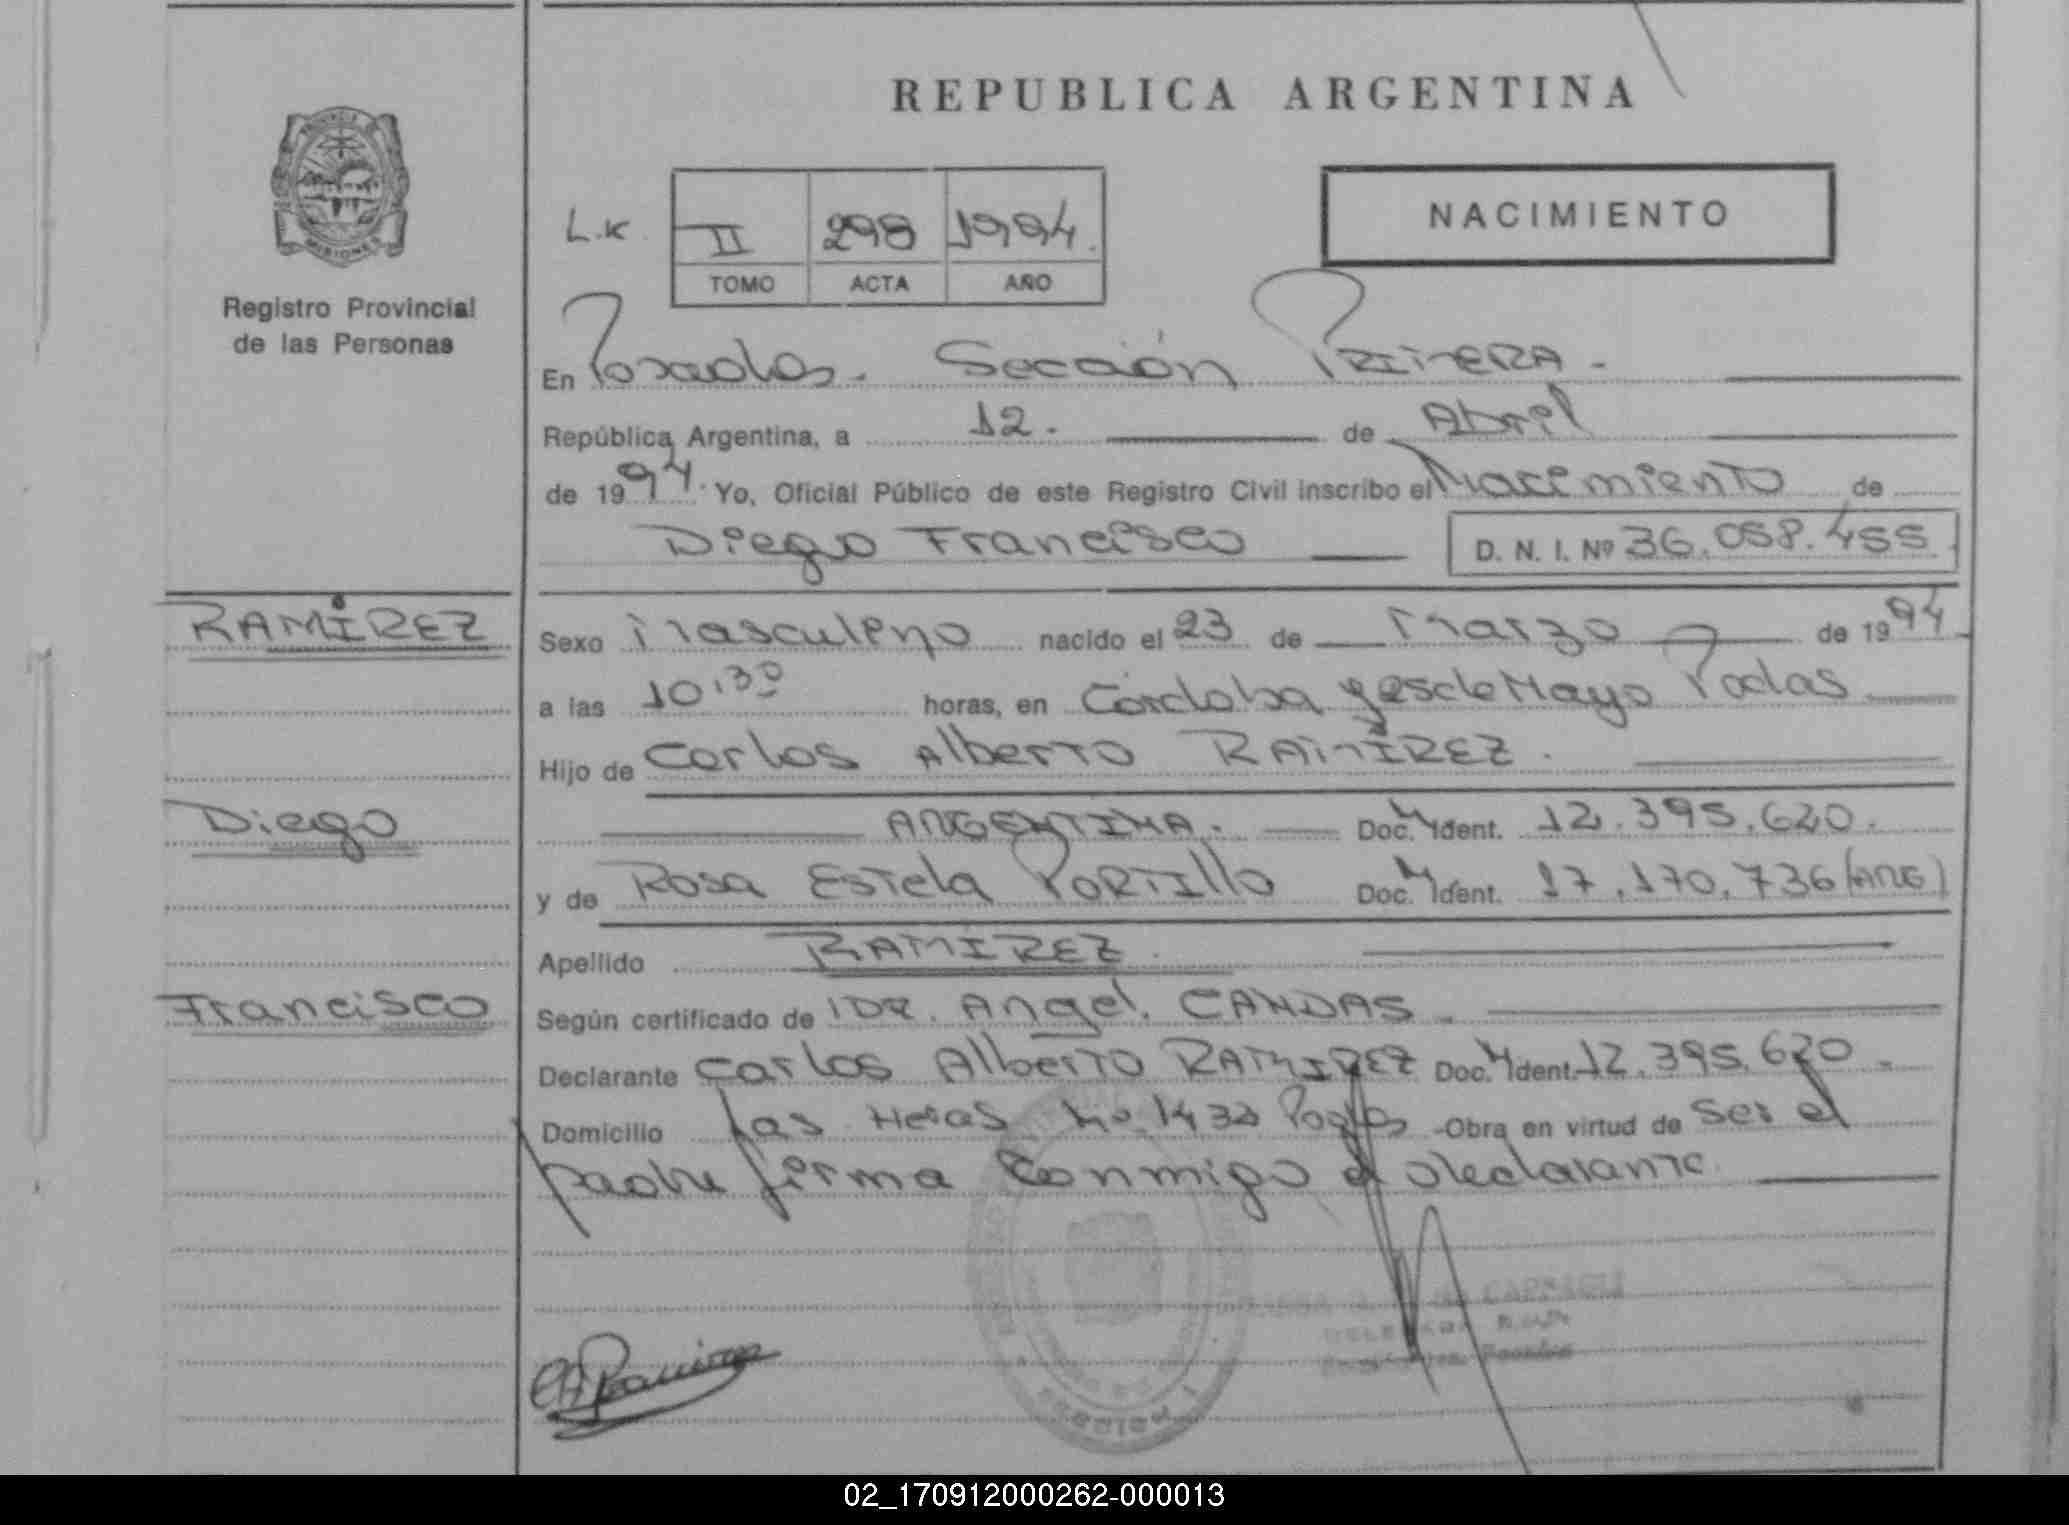 REPUBLICA ARGENTINA
PROVINCIA DE
MISIONES
Registro Provincial
de las Personas
L.K.
II 298 1994.
TOMO ACTA AÑO
NACIMIENTO
En Posadas. Sección PRIMERA.
República Argentina, a 12. de Abril
de 1994. Yo, Oficial Público de este Registro Civil inscribo el Nacimiento de
Diego Francisco D. N. I. Nº 36.058.455
RAMÍREZ
Sexo Masculino nacido el 23 de Marzo de 1994
a las 10,30 horas, en Córdoba y 25 de Mayo Podas
Hijo de Carlos Alberto RAMÍREZ.
Diego
ARGENTINA. Doc. M Ident. 12.395.620.
y de Rosa Estela PORTILLO Doc. M Ident. 17.170.736 (ARG)
Apellido RAMIREZ.
Francisco
Según certificado de DR. Angel. CANDAS.
Declarante Carlos Alberto RAMIREZ Doc. M Ident. 12.395.620.
Domicilio Las Heras No. 1432 -Obra en virtud de ser el
padre firma conmigo el declarante.
02_170912000262-000013